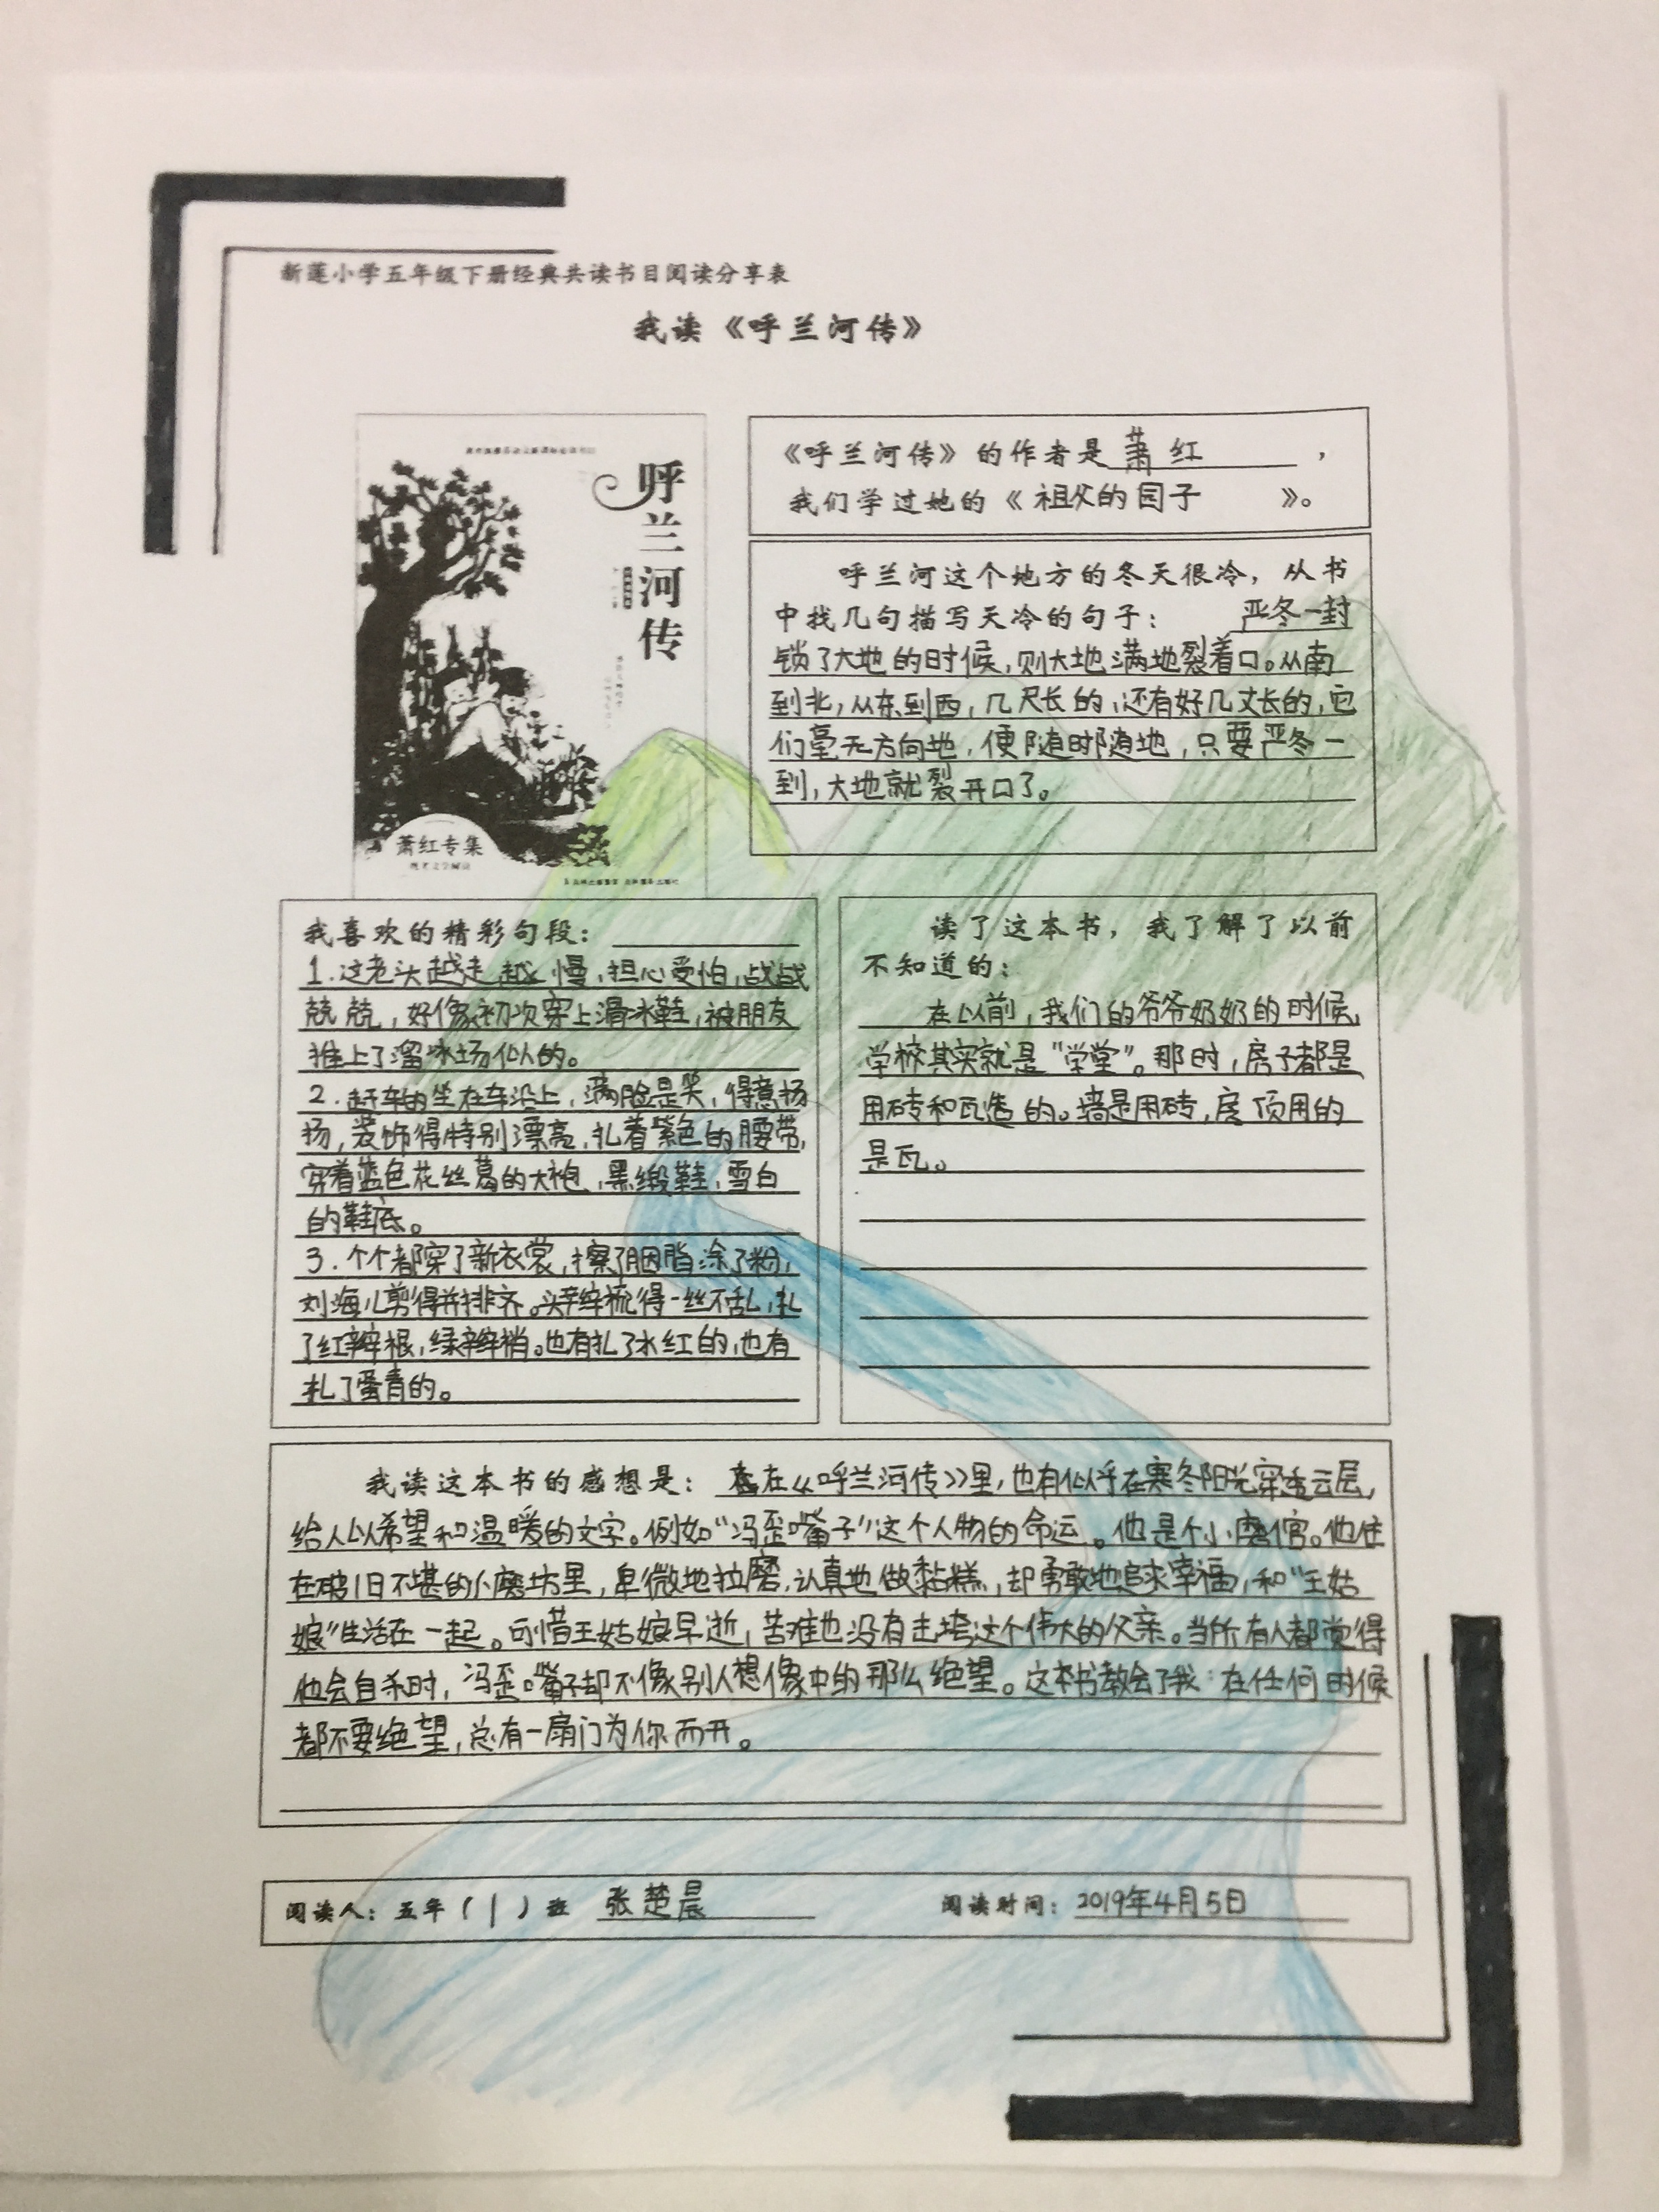 新莲小学五年级下册经典共读书目阅读分享表
我读《呼兰河传》
呼兰河传
萧红专集
《呼兰河传》的作者是 萧红 ，
我们学过她的《 祖父的园子 》。
呼兰河这个地方的冬天很冷，从书
中找几句描写天冷的句子： 严冬一封
锁了大地的时候，则大地满地裂着口。从南
到北，从东到西，几尺长的，还有好几丈长的，它
们毫无方向地，便随时随地，只要严冬一
到，大地就裂开口了。
我喜欢的精彩句段：
1.这老头越走越慢，担心受怕，战战
兢兢，好像初次穿上滑冰鞋，被朋友
推上了溜冰场似的。
2.赶车的坐在车沿上，满脸是笑，得意扬
扬，装饰得特别漂亮，扎着紫色的腰带，
穿着蓝色花丝葛的大袍，黑缎鞋，雪白
的鞋底。
3.个个都穿了新衣裳，擦了胭脂涂了粉，
刘海儿剪得并排齐。头辫梳得一丝不乱，扎
了红辫根，绿辫梢。也有扎了水红的，也有
扎了蛋青的。
读了这本书，我了解了以前
不知道的：
在以前，我们的爷爷奶奶的时候，
学校其实就是“学堂”。那时，房子都是
用砖和瓦造的。墙是用砖，房顶用的
是瓦。
我读这本书的感想是： 在《呼兰河传》里，也有似乎在寒冬阳光穿透云层，
给人以希望和温暖的文字。例如“冯歪嘴子”这个人物的命运。他是个小磨倌。他住
在破旧不堪的小磨坊里，卑微地拉磨，认真地做黏糕，却勇敢地追求幸福，和“王姑
娘”生活在一起。可惜王姑娘早逝，苦难也没有击垮这个伟大的父亲。当所有人都觉得
他会自杀时，冯歪嘴子却不像别人想像中的那么绝望。这本书教会了我：在任何时候
都不要绝望，总有一扇门为你而开。
阅读人：五年（1）班 张楚晨 阅读时间：2019年4月5日